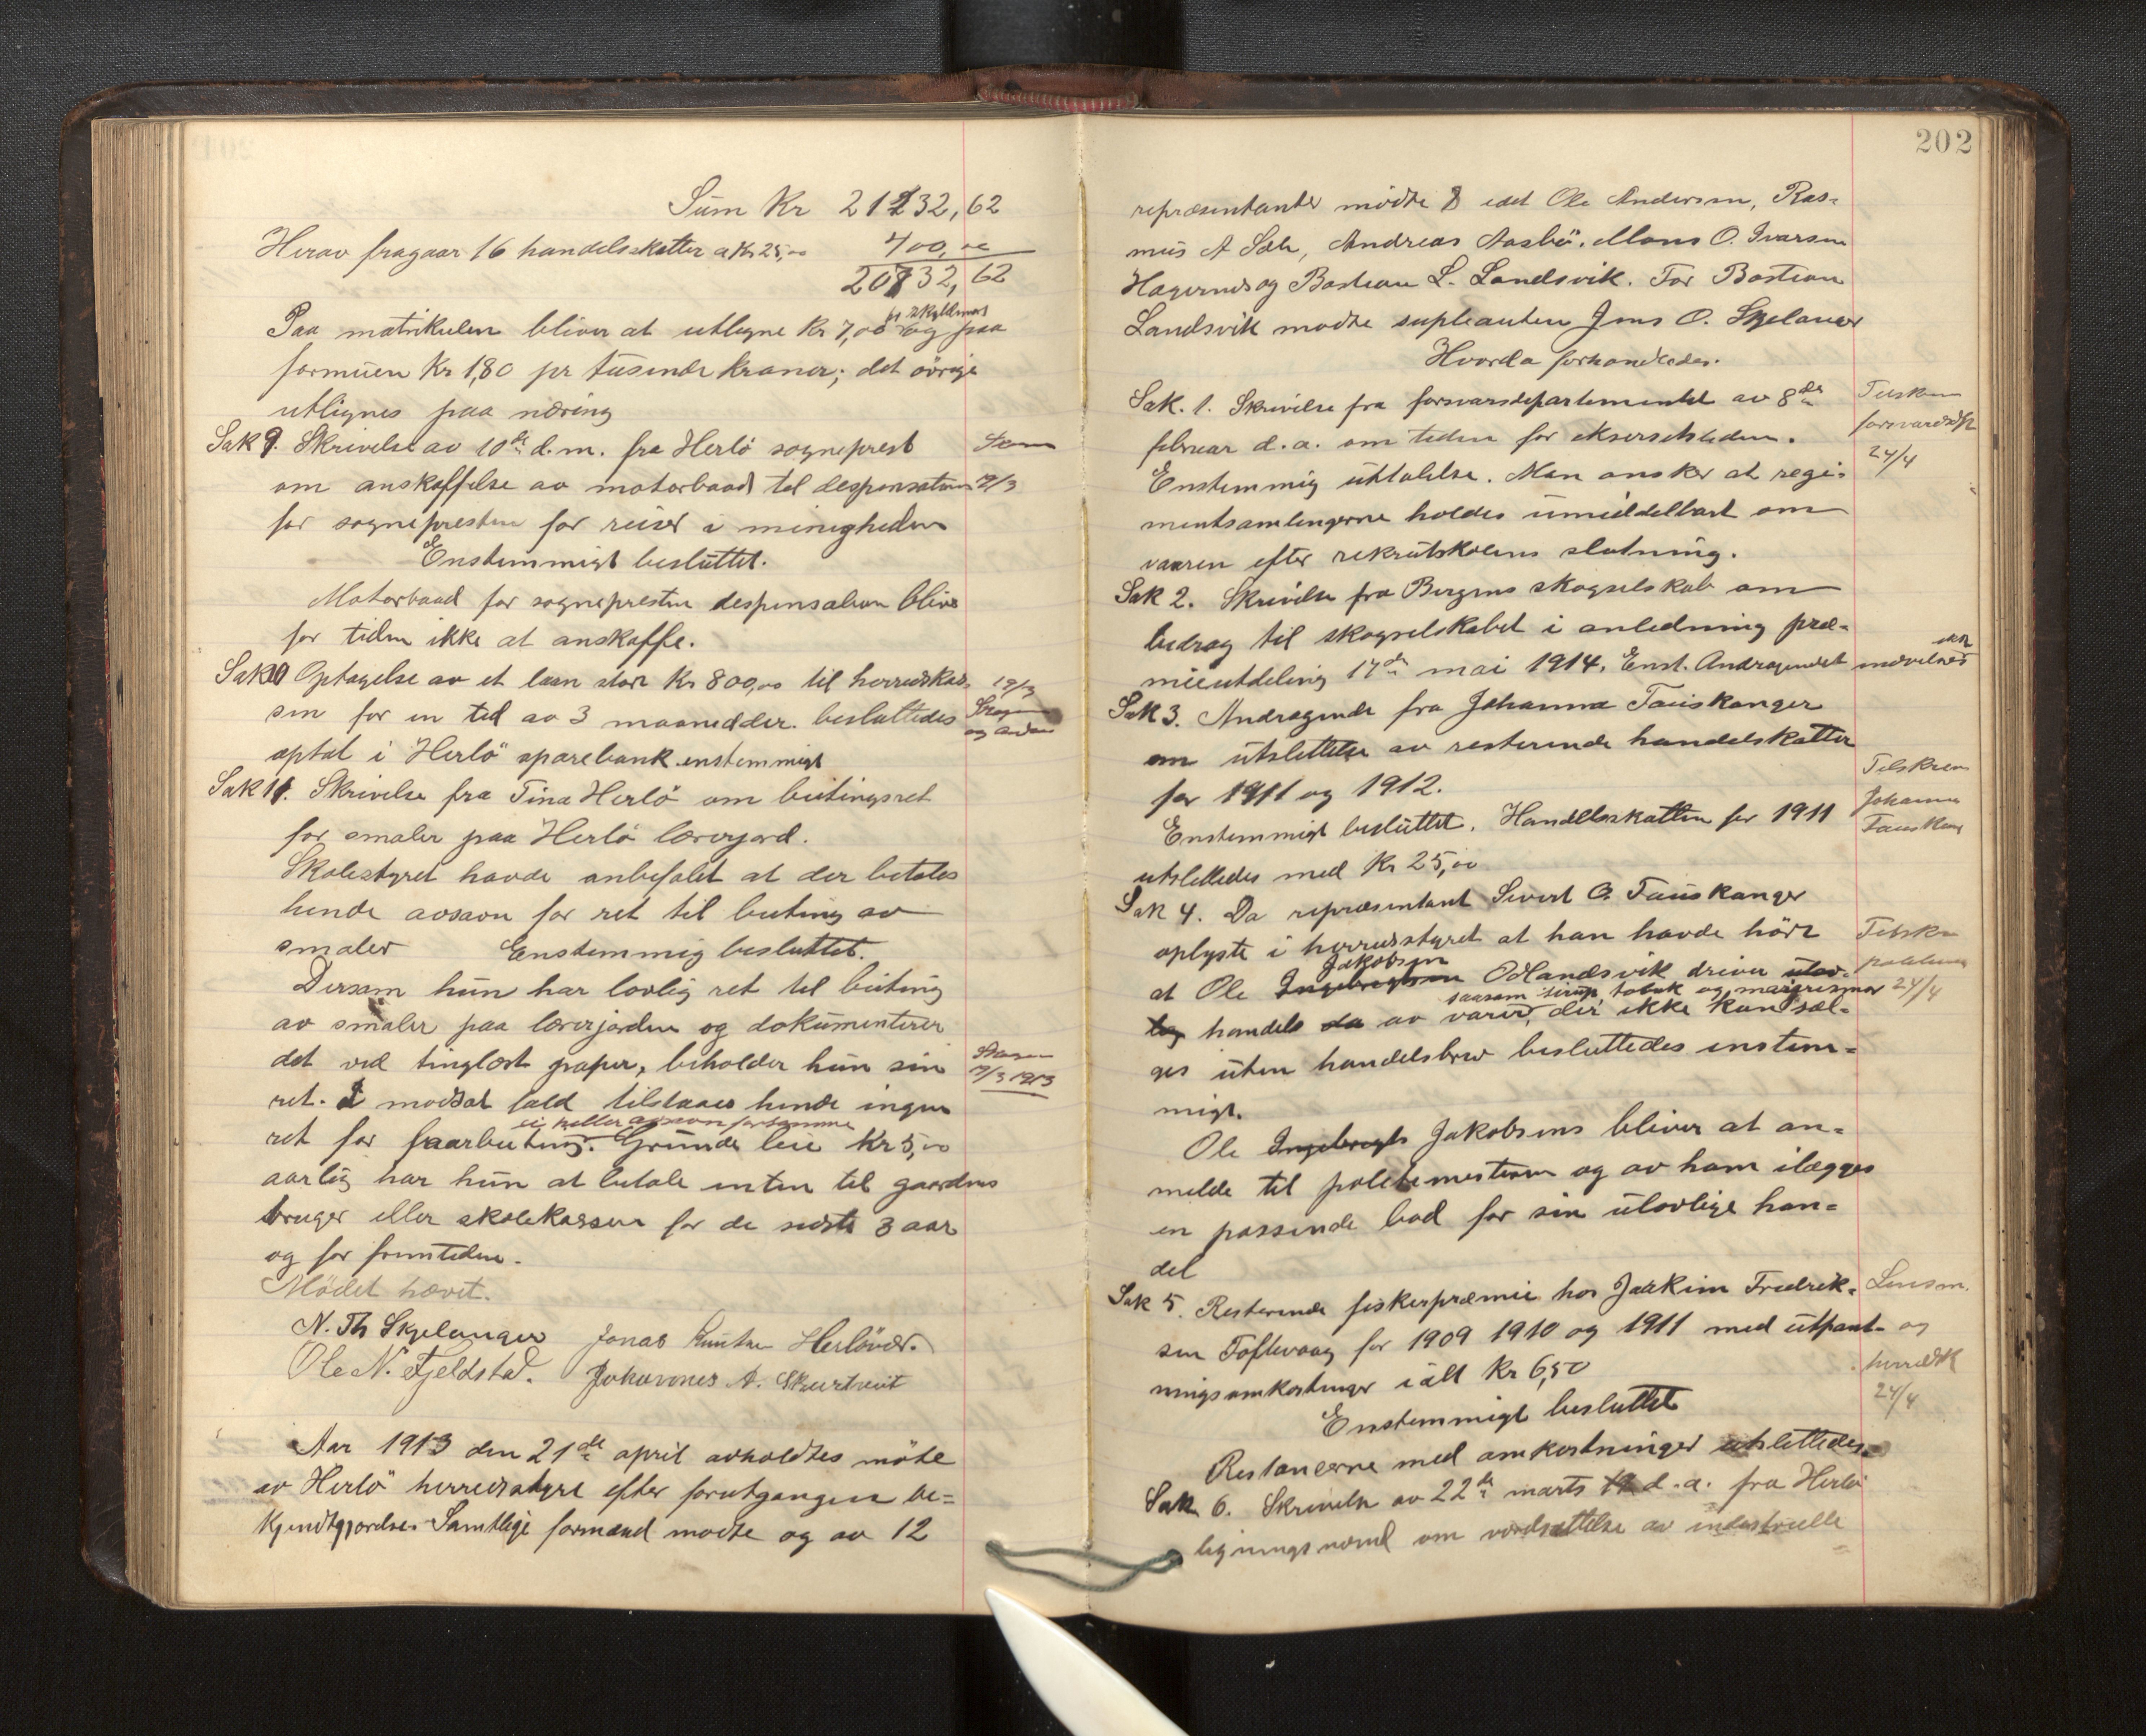 Sum Kr 21232,62
Herav fragaar 16 handelsskatter a Kr 25,00 400,00
20832,62
Paa matrikulen bliver at utligne Kr 7,00 pr skyldmark og paa
formuen Kr 1,80 pr tusende kroner; det övrige
utlignes paa næring
Sak 9. Skrivelse av 10de d.m. fra Herlö sogneprest
om anskaffelse av motorbaad til despensation
19/3
for sognepresten for reiser i menigheden
Enstemmigt besluttet.
Motorbaad for sognepresten despensation blive
for tiden ikke at anskaffe.
Sak 10 Optagelse av et laan stort Kr 800,00 til herredskas-
19/3
sen for en tid av 3 maaneder besluttedes
optat i Herlö sparebank enstemmigt
Sak 11. Skrivelse fra Tina Herlö om beitingsret
for smaler paa Herlö lærerjord.
Skolestyret havde anbefalet at der betales
hende avsavn for ret til beiting av
smaler Enstemmig besluttet.
Dersom hun har lovlig ret til beiting
av smaler paa lærerjorden og dokumenterer
det ved tinglæst papir, beholder hun sin
19/3 1913
ret. I modsat fald tilstaaes hende ingen
ei heller avsavn for samme
ret for faarbeiting. Grunde leie Kr 5,00
aarlig har hun at betale enten til gaardens
bruger eller skolekassen for de sidste 3 aar
og for fremtiden.
Mödet hævet.
N. Th Skjelanger Jonas Knutsen Herlövær.
Ole N. Fjeldstad. Johannes A. Skurtveit
Aar 1913 den 21de april avholdtes möte
av Herlö herredsstyre efter forutgangen be=
kjendtgjordelse. Samtlige formænd mødte og av 12
202
repræsentanter mödte 8 idet Ole Andersen, Ras=
mus A Sæle, Andreas Aasbö, Mons O. Ivarsen
Hagernes og Bastian L. Landsvik. For Bastian
Landsvik mødte supleanten Jens O. Skjelanger
Hvorda forhandledes.
Sak. 1. Skrivelse fra forsvarsdepartementet av 8de
forsvarsdp
februar d.a. om tiden for eksersetstiden.
24/4
Enstemmig uttalelse. Man ønsker at regi-
mentsamlingerne holdes umiddelbart om
vaaren efter rekrutskolens slutning.
Sak 2. Skrivelse fra Bergens skogselskab om
bidrag til skogselskabet i anledning præ-
mieutdeling 17de mai 1914. Enst. Andragendet
Sak 3. Andragende fra Johanna Tauskanger
om utslettelse av resterende handelskatter
for 1911 og 1912.
Tilskrev
Johanna
Tauskang
Enstemmigt besluttet. Handelsskatten for 1911
utslettedes med Kr 25,00
Sak 4. Da repræsentant Sivert O. Tauskanger
oplyste i herredsstyret at han havde hört
Jakobsen
at Ole Ingebrigtsen Odlandsvik driver ulov-
saasom sirup, tobak og margrismør
24/4
lig handels da av varer, der ikke kan sæl-
ges uten handelsbrev besluttedes enstem=
migt.
Ole Ingebrigts Jakobsens bliver at an=
melde til politimesteren og av ham ilægges
en passende bod for sin ulovlige han=
del
Sak 5. Resterende fiskerpræmie hos Joakim Fredrik-
Lensm.
sen Toftevaag for 1909 1910 og 1911 med utpant-
og
ningsomkostninger ialt Kr 6,50
herredsk
24/4
Enstemmigt besluttet
Restancerne med omkostninger utslettedes
Sak 6. Skrivelse av 22de marts d.a. fra Herlö
ligningsnævnd om værdsættelse av industrielle